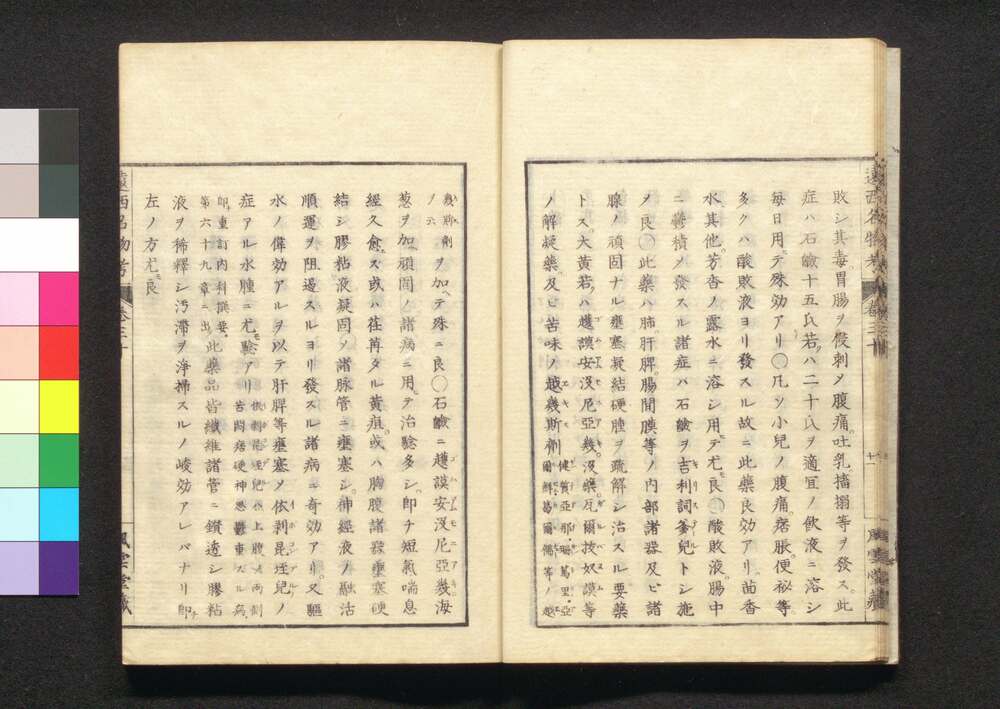 敗シ其毒胃腸ヲ侵刺メ腹痛吐乳搐搦等ヲ發ス此
症ハ石鹼十五氏若ハ二十氏ヲ適宜ノ飲液ニ溶シ
毎日用テ殊効アリ○凡ソ小兒ノ腹痛痞脹便祕等
多クハ酸敗液ヨリ發スル故ニ此藥良効アリ茴香
水其他芳香ノ露水ニ溶シ用テ尤良○酸敗液腸中
ニ鬱積メ發スル諸症ハ石鹼ヲ吉利詞篤兒トシ施
メ良○此藥ハ肺肝脾腸間膜等ノ内部諸器及ヒ諸
腺ノ頑固ナル壅塞凝結硬腫ヲ疏解シ治スル要藥
トス大黃若ハ越謨安沒尼亞幾沒藥瓦爾按奴謨等
ノ解凝藥及ヒ苦味ノ越幾斯劑健質亞那珊篤里亞爾鮮葛爾儞等ノ越
幾斯劑ノ六ヲ加テ殊ニ良○石鹼ニ越謨安沒尼亞幾海
葱ヲ加頑固ノ諸病ニ用テ治驗多シ即チ短氣喘息
經久愈ズ或ハ荏苒タル黃疸或ハ胸腹諸器壅塞硬
結シ膠粘液凝固メ諸脉管ニ壅塞シ神經液ノ融活
順運ヲ阻遏スルヨリ發スル諸病ニ奇効アリ又驅
水ノ偉効アルヲ以テ肝脾等壅塞メ依剥昆垤兒ノ
症アル水腫ニ尤驗アリ依剥昆垤兒ハ上腹及両側苦悶痞硬神思鬱重スル病
即重訂内科撰要第六十九章ニ出此藥品皆纖維諸管ニ鑽透シ膠粘
液ヲ稀釋シ汚滯ヲ淨掃スルノ峻効アレバナリ即
左ノ方尤良
遠西名物考
卷三十
風雲堂藏